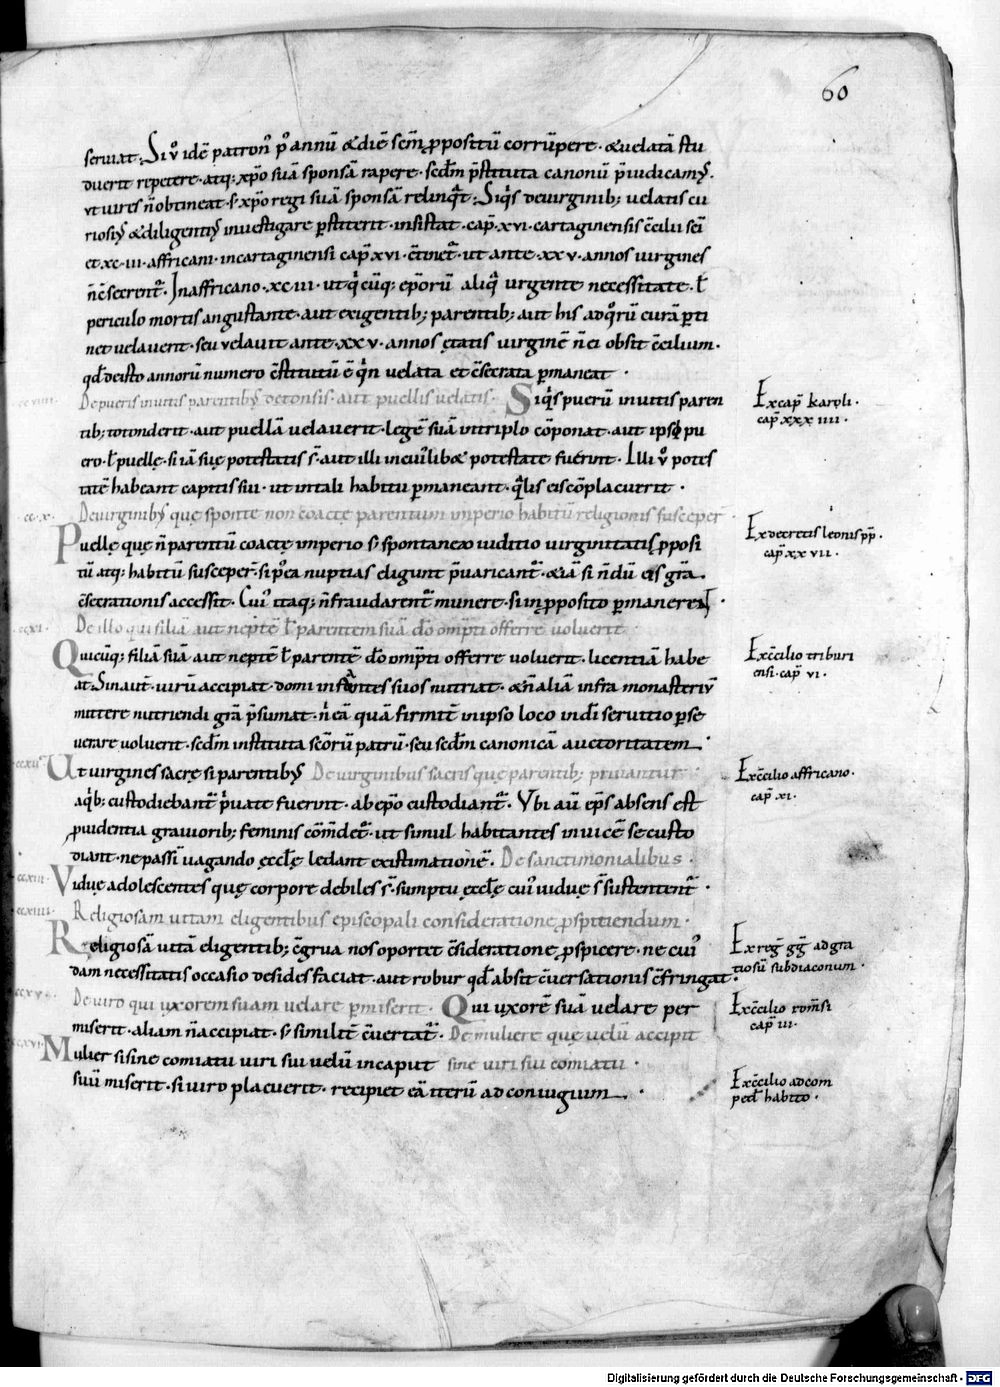 60
seruiat. Si v̊ idē patron᷒ p᷒ annū & diē sem̄ p̱positū corrūpere. & uelatā stu
duerit repetere. atq; xp̄o suā sponsā rapere. sedm̄ p̄stituta canonū p̄iudicam᷒.
ut uires n̄ obtineat. s; xp̄o regi suā sponsā relinq̄t. Siq̄s de uirginib; uelatis cu
riosi᷒ & diligenti᷒ inuestigare p̱stiterit. insistat. cap̄. xvi. cartaginensis c̄cilii
et xc. iii. affricani. in cartaginensi cap̄ xvi. c̄tinet᷒. ut ante. xxv. annos uirgines
n̄ c̄secrent᷒. In affricano. xc. iii. ut q̄cūq; ep̄orū aliq̄ urgente necessitate. ł
periculo mortis angustante. aut exigentib; parentib; aut his ad q̄rū curā p̱ti
net uelauerit. seu uelauit ante. xxv. annos ętatis uirginē n̄ ei obsit c̄cilium.
qđ de isto annorū numero c̄stitutū ē q̄n uelata et c̄secrata p̱maneat.
De pueris inuitis parentib᷒ detonsis. aut puellis uelatis. Siq̄s puerū inuitis paren
Ex cap̄ karoli.
cap̄ xxx iiii.
tib; totonderit. aut puellā uelauerit. legē suā in triplo cōponat. aut ipso pu
ero. ł puellę. si iā suę potestatis s̄. aut illi in cui᷒ libet potestate fuerint. Illi v̊ potes
tatē habeant capitis sui. ut in tali habitu p̱maneant. q̄lis eis cōplacuerit.
ccx. De uirginib᷒ quę sponte non coacte parentum imperio habitū religionis susceper
Puellę quę n̄ parentū coactę imperio s; spontaneo iuditio uirginitatis p̱posi
Ex decretis leonis pp̄.
cap̄ xx vii.
tū atq; habitū susceper̄. si p᷒ea nuptias eligunt p̄uaricant᷒. & iā si n̄dū eis gr̄a
c̄secrationis accessit. Cui᷒ itaq; n̄ fraudarent᷒ munere. si in p̱posito p̱manerent.
ccxi. De illo qui filiā aut neptē ł parentem suā dō omp̄ti offerre uoluerit
Quicūq; filiā suā aut neptē ł parentē dō omp̄ti offerre uoluerit. licentiā habe
Ex c̄cilio triburi
ensi. cap̄ vi.
at. Sin aut̄. uirū accipiat. domi infantes suos nutriat. & n̄ aliā infra monasteriū
mittere nutriendi gr̄a p̄sumat. n̄ eā quā firmit̄ in ipso loco in dī seruitio p̱se
uerare uoluerit. sedm̄ instituta scōrū patrū. seu sedm̄ canonicā auctoritatem.
ccxii. Ut uirgines sacrę si parentib᷒ De uirginibus sacris quę parentib; priuantur
Ex c̄cilio affricano.
cap̄ xi.
a q̄b; custodiebant᷒ p̄uate fuerint. ab ep̄o custodiant᷒. Vbi aū ep̄s absens est
p̱uidentia grauiorib; feminis cōmdet᷒. ut simul habitantes inuicē se custo
diant. ne passī uagando ęccłę ledant existimationē. De sanctimonialibus.
ccxiii. Viduę adolescentes quę corpore debiles s̄. sumptu ęccłę cui᷒ uiduę s̄ sustentent᷒.
ccxiiii. Religiosam uitam eligentibus episcopali consideratione p̱spitiendum.
Religiosā uitā eligentib; c̄grua nos oportet c̄sideratione p̱spicere. ne cui᷒
Ex reḡ gḡ ad gra
tiosū subdiaconum.
dam necessitatis occasio desides faciat. aut robur qđ absit c̄uersationis c̄fringat.
ccxv. De uiro qui uxorem suam uelare p̱miserit. Qui uxorē suā uelare per
Ex c̄cilio rom̄si
cap̄ iii.
miserit. aliam n̄ accipiat. s; similit̄ c̄uertat᷒. De muliere quę uelū accipit
ccxvi. Mulier si sine comiatu uiri sui uelū in caput sine uiri sui comiatu.
suū miserit. si uiro placuerit. recipiet eā iterū ad coniugium.
Ex c̄cilio ad com
pend̄ habito.
Digitalisierung gefördert durch die Deutsche Forschungsgemeinschaft - DFG